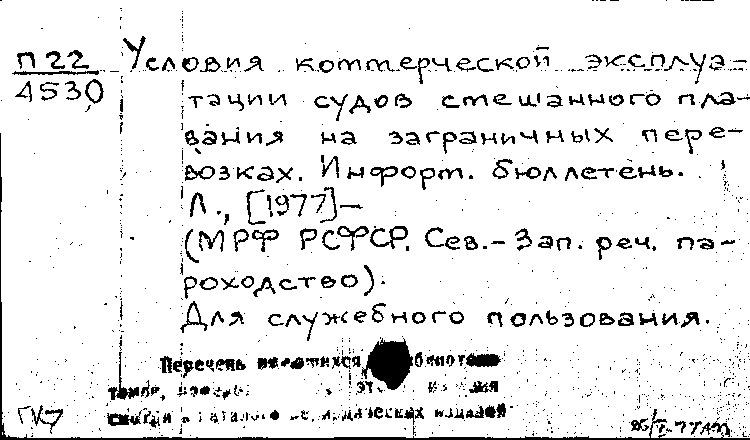 П 22 Условия коммерческой эксплуа-
4530 тации судов смешанного пла-
вания на заграничных пере-
возках. Информ. бюллетень.
Л., [1977]—
(МРФ РСФСР. Сев.-Зап. реч. па-
роходство).
Для служебного пользования.
Перечень имеющихся
ГК7